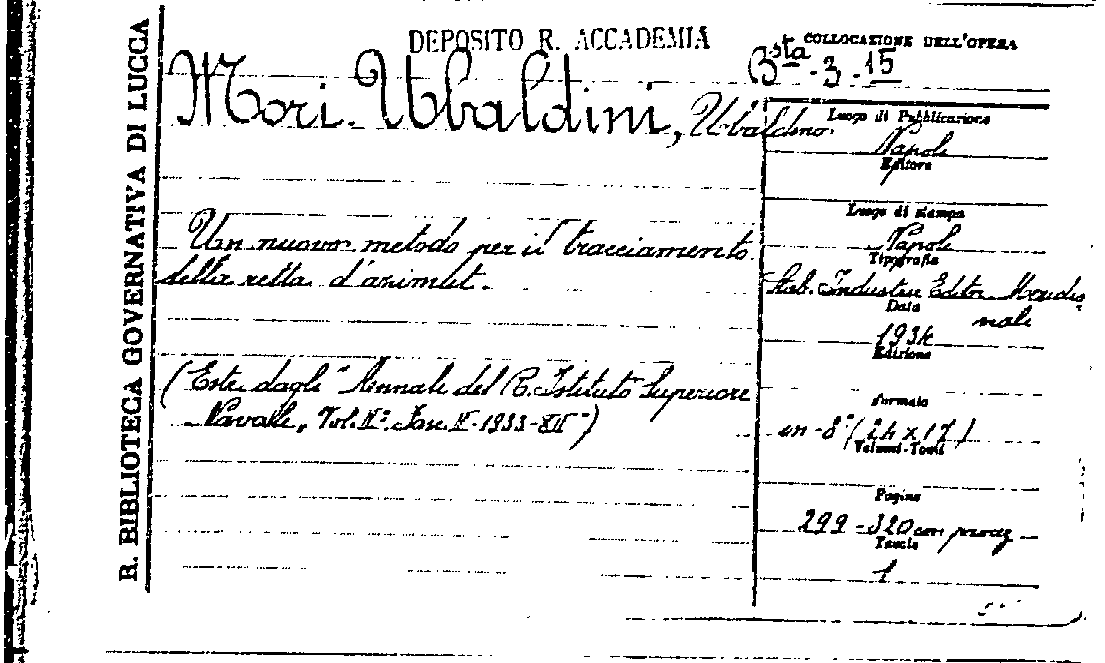 R. BIBLIOTECA GOVERNATIVA DI LUCCA
DEPOSITO R. ACCADEMIA
COLLOCAZIONE DELL'OPERA
Bsta - 3 - 15
Mori - Ubaldini, Ubaldino.
Luogo di Pubblicazione
Napoli
Editore
Luogo di stampa
Napoli
Tipografia
Stab. Industrie Editor. Meridio
nali
Data
1934
Edizione
Un nuovo metodo per il tracciamento
della retta d'azimut.
(Estr. dagli "Annali del R. Istituto Superiore
Navale, Vol. II° Fasc. II - 1933 - XII")
Formato
in-8° (24 x 17)
Volumi-Tomi
Pagine
299 - 320 con
Tavole
1